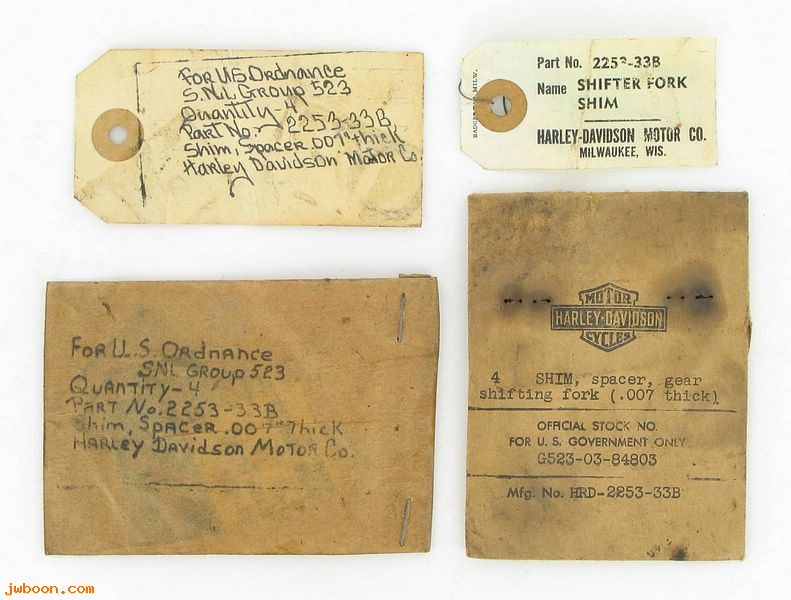 For U.S. Ordnance
S.N.L Group 523
Quantity-4
Part No.- 2253-33B
Shim, Spacer .007" thick
Harley Davidson Motor Co.
Part No. 2253-33B
Name SHIFTER FORK
SHIM
HARLEY-DAVIDSON MOTOR CO.
MILWAUKEE, WIS.
MILW.
For U.S. Ordnance
SNL Group 523
Quantity-4
Part No. 2253-33B
Shim, Spacer .007" Thick
Harley Davidson Motor Co.
MOTOR
HARLEY-DAVIDSON
CYCLES
4 SHIM, spacer, gear
shifting fork (.007 thick)
OFFICIAL STOCK NO.
FOR U. S. GOVERNMENT ONLY
G523-03-84803
Mfg. No. HRD-2253-33B
jwboon.com